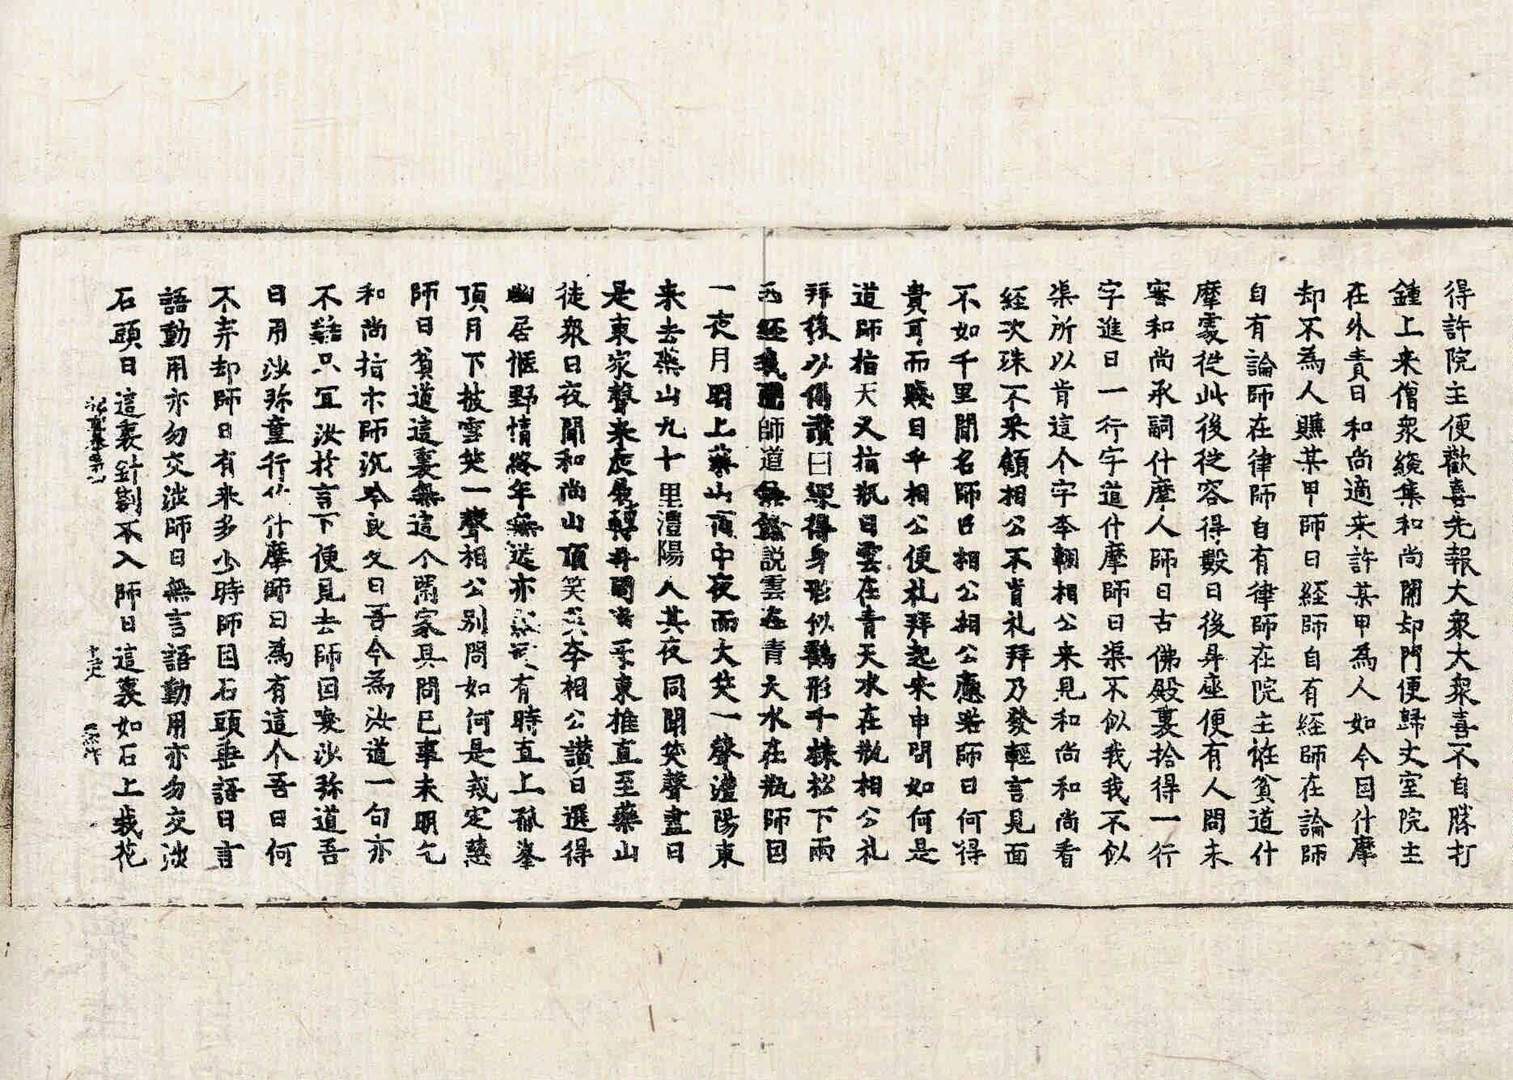 得許院主便歡喜先報大衆大衆喜不自勝打
鍾上来僧衆纔集和尚閇却門便歸丈室院主
在外責曰和尚適来許某甲為人如今因什摩
却不為人賺某甲師曰経師自有経師在論師
自有論師在律師自有律師在院主恠貧道什
摩處従此後従容得數日後昇座便有人問未
審和尚承詞什摩人師曰古佛殿裏拾得一行
字進曰一行字道什摩師曰渠不似我我不似
渠所以肯這个字李翱相公来見和尚和尚看
経次殊不采顧相公不肯礼拜乃發輕言見面
不如千里聞名師曰相公相公應喏師曰何得
貴耳而賤目乎相公便礼拜起来申問如何是
道師指天又指瓶曰雲在青天水在瓶相公礼
拜後以偈讃曰練得身形似鶴形千株松下兩
師道無餘説雲在青天水在瓶師因
一夜月明上藥山頂中夜而大笑一聲澧陽東
来去藥山九十里澧陽人其夜同聞笑聲盡曰
是東家聲来展轉東推直至藥山
徒衆曰夜聞和尚山頂笑李相公讃曰選得
幽居愜野情終年無送亦有時直上孤峯
頂月下披雲笑一聲相公別問如何是戒定慧
師曰貧道這裏無這个閑家具問己事未明乞
和尚指示師沉吟良久曰吾今為汝道一句亦
不難只冝汝於言下便見去師因喚沙弥道吾
曰用沙弥童行作什摩師曰為有這个吾曰何
不弃却師曰有来多少時師因石頭垂語曰言
語動用亦勿交渉師曰無言語動用亦勿交渉
石頭曰這裏針劄不入師曰這裏如石上栽花